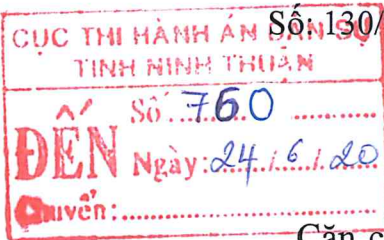 CỤC THI HÀNH ÁN DÂN SỰ Số: 130/
TỈNH NINH THUẬN
ĐẾN
Số: 760
Ngày: 24 / 6 / 20
Chuyển:
Căn c